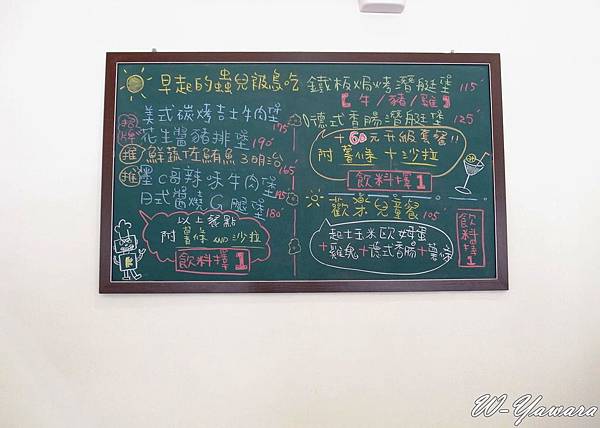 早起的蟲兒飯急吃
招牌 美式碳烤吉士牛肉堡 175
花生醬豬排堡 190
推 鮮蔬佐鮪魚3明治 165
推 墨C哥辣味牛肉堡 195
日式醬燒G腿堡 180
以上餐點
附薯條AND沙拉
飲料擇1
鐵板焗烤潛艇堡 115
【牛/豬/雞】
德式香腸潛艇堡 125
+60元升級套餐!!
附薯條+沙拉
飲料擇1
歡樂兒童餐 105
起士玉米歐姆蛋
+雞塊+德式香腸+薯條
飲料擇1
W-Yawara